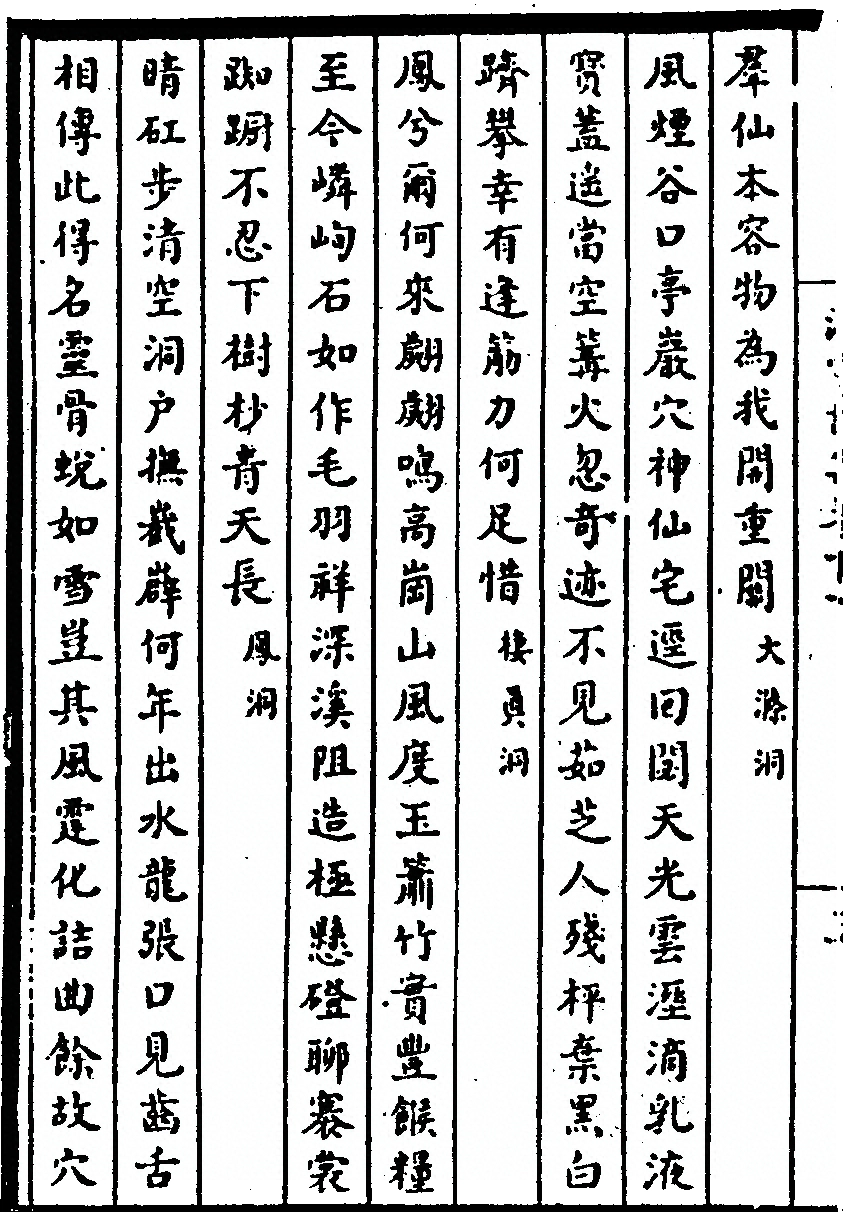 羣仙本容物為我開重關大滌洞
風煙谷口亭巖穴神仙宅逕回閟天光雲溼滴乳液
寳蓋遥當空篝火忽奇迹不見茹芝人殘枰棄黒白
躋攀幸有逢筋力何足惜棲真洞
鳳兮爾何來翽翽鳴高崗山風度玉簫竹實豐餱糧
至今嶙峋石如作毛羽祥深溪阻造極懸磴聊褰裳
踟蹰不忍下樹杪青天長鳳洞
晴矼步清空洞户撫巀嶭何年出水龍張口見齒舌
相傳此得名靈骨蛻如雪豈其風霆化詰曲餘故穴